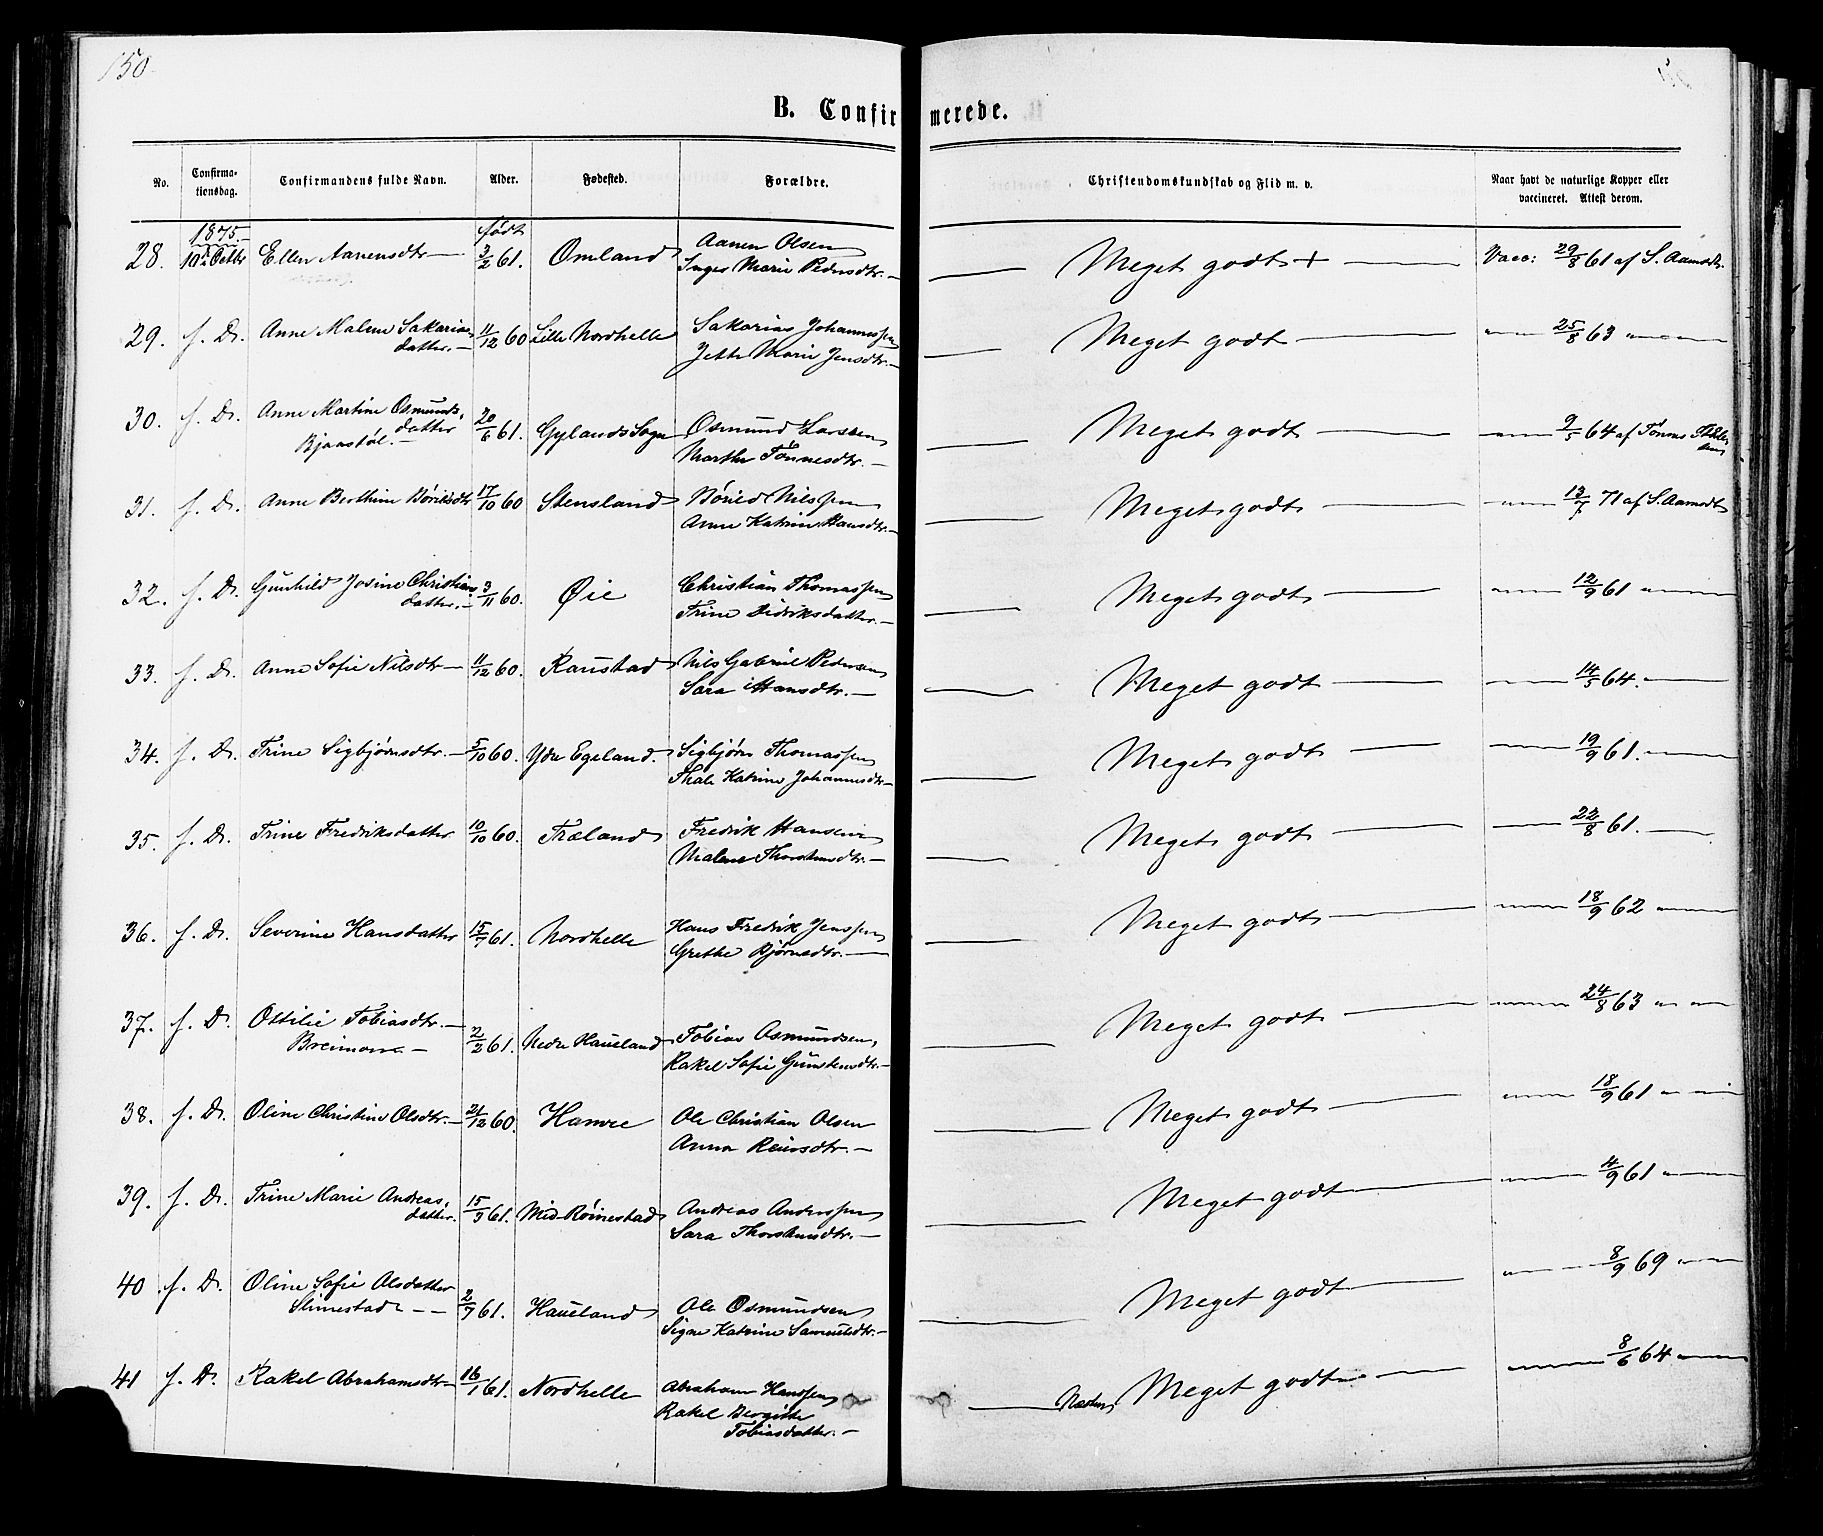 150
B. Confirmerede.
No. Confirmationsdag. Confirmandens fulde Navn. Alder. Fødested. Forældre. Christendomskundskab og Flid m. v. Naar havt de naturlige Kopper eller vaccineret. Attest derom.
1875. født
28. 10de Octbr Ellen Aanensdtr — 3/2 61. Omland Aanen Olsen Meget godt + — Vacc: 29/8 61 af S. Aamodt.
Inger Marie Pedersdtr. —
29. s. D. Anne Malene Sakarias 11/12 60 Lille Nordhelle Sakarias Johannessen Meget godt — 25/8 63
datter. — Jette Marie Jensdtr. —
30. s. D. Anne Martine Osmunds, 20/6 61. Gylands Sogn Osmund Larsen Meget godt — 9/5 64 af Tönnes
datter Marthe Tönnesdtr. —
Bjaastöl. —
31. s. D. Anne Berthine Börildsdtr 17/10 60 Stensland Böried Nilssen Meget godt — 13/7 71 af S. Aamodt
Anne Katrine Hansdtr. —
32. s. D. Gunhild Josine Christians 3/11 60. Øie Christian Thomassen Meget godt — 12/9 61
datter. — Trine Didriksdatter. —
33. s. D. Anne Sofie Nilsdtr — 11/12 60. Raustad Nils Gabriel Pedersen Meget godt — 14/5 64. —
Sara Hansdtr. —
34. s. D. Trine Sigbjørnsdtr. — 5/10 60. Ydre Egeland. Sigbjörn Thomassen Meget godt — 19/9 61. —
Thale Katrine Johannesdtr —
35. s. D. Trine Fredriksdatter 10/10 60. Træland Fredrik Hansen Meget godt — 22/8 61. —
Malene Thorstensdtr. —
36. s. D. Severine Hansdatter 15/7 61. Nordhelle Hans Fredrik Jenssen Meget godt — 18/9 62
Grethe Bjørnsdtr. —
37. s. D. Ottilie Tobiasdtr. — 2/2 61. Nedre Haueland Tobias Osmundsen Meget godt — 24/8 63
Breimoen. — Rakel Sofie Gunstensdtr. —
38. s. D. Oline Christine Olsdtr. — 21/12 60. Hamre Ole Christian Olsen Meget godt — 18/9 61
Anna Reinsdtr. —
39. s. D. Trine Marie Andreas, 15/3 61. Mid-Röinestad Andreas Anderssen Meget godt — 4/9 61
datter. Sara Thorstensdtr. —
40. s. D. Oline Sofie Olsdatter 2/7 61. Haueland Ole Osmundsen Meget godt — 8/9 69
Slimestad — — Signe Katrine Samueldtr. —
41 s. D. Rakel Abrahamsdtr — 16/1 61. Nordhelle Abraham Hanssen Næsten Meget godt — 8/6 64
Rakel Bergitte
Tobiasdatter. —